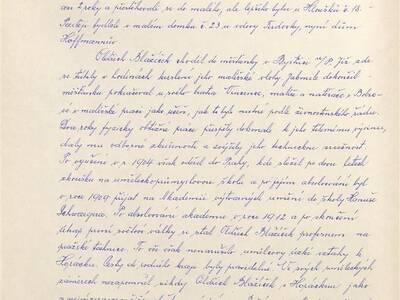 roce 2 roky a přestěhovali se do malého, ale lepšího bytu v Hloušku č. 18.
Později bydleli v malém domku č. 23 u vdovy Fialovky, nyní dům
Hoffmannův.
Oldřich Blažíček chodil do měšťanky v Bystřici n/P. Již zde
se tehdy v hodinách kreslení jeho malířské vlohy. Jakmile dokončil
měšťanku pokračoval u svého bratra Vincence, malíře a natěrače v
v malířské praxi jako učeň, jak to bylo nutné podle živnostenského řádu.
Dva roky fysicky obtížné práce přispěly dokonale k jeho tělesnému vývinu,
daly mu odborné zkušenosti a zvýšily jeho technickou zručnost.
Po vyučení v r. 1904 však odešel do Prahy, kde složil po dvou letech
zkoušku na uměleckoprůmyslovou školu a po jejím absolvování byl
v roce 1909 přijat na Akademii výtvarných umění do školy Hanuše
Schwaigra. Po absolvování akademie v roce 1912 a po skončení
útrap první světové války se stal Oldřich Blažíček profesorem na
pražské technice. To vše však nenarušilo umělcovy úzké vztahy k
Horácku. Cesty do rodného kraje byly pravidelné. Ve svých
pamětech nezapomněl nikdy Oldřich Blažíček s Horáckem jako